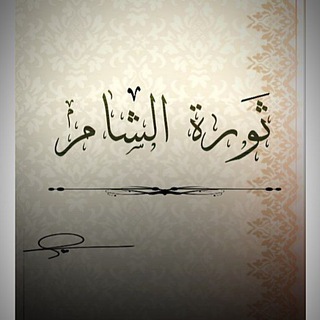 ثَورة الشام